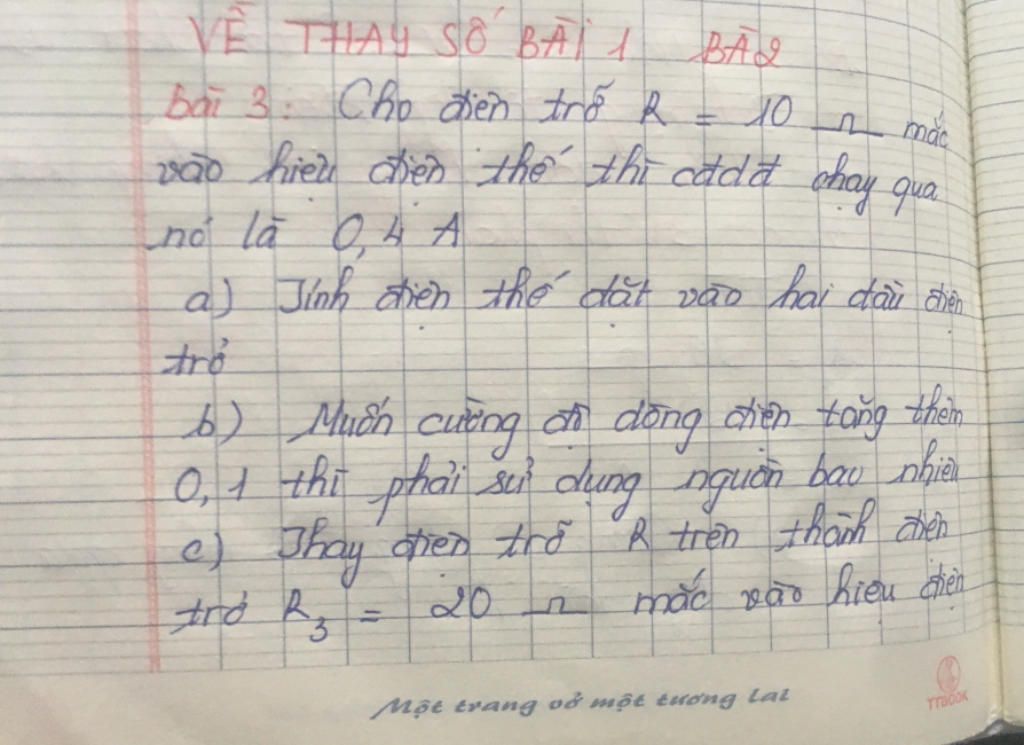 VỀ THAY SỐ BÀI 1 BÀ2
Bài 3: Cho điện trở R = 10 Ω mắc
vào hiệu điện thế thì cđdđ chạy qua
nó là 0,4 A
a) Tính điện thế đặt vào hai đầu điện
trở
b) Muốn cường độ dòng điện tăng thêm
0,1 thì phải sử dụng nguồn bao nhiêu
c) Thay điện trở R trên thành điện
trở R3 = 20 Ω mắc vào hiệu điện
Một trang vở một tương lai
TTBOOK